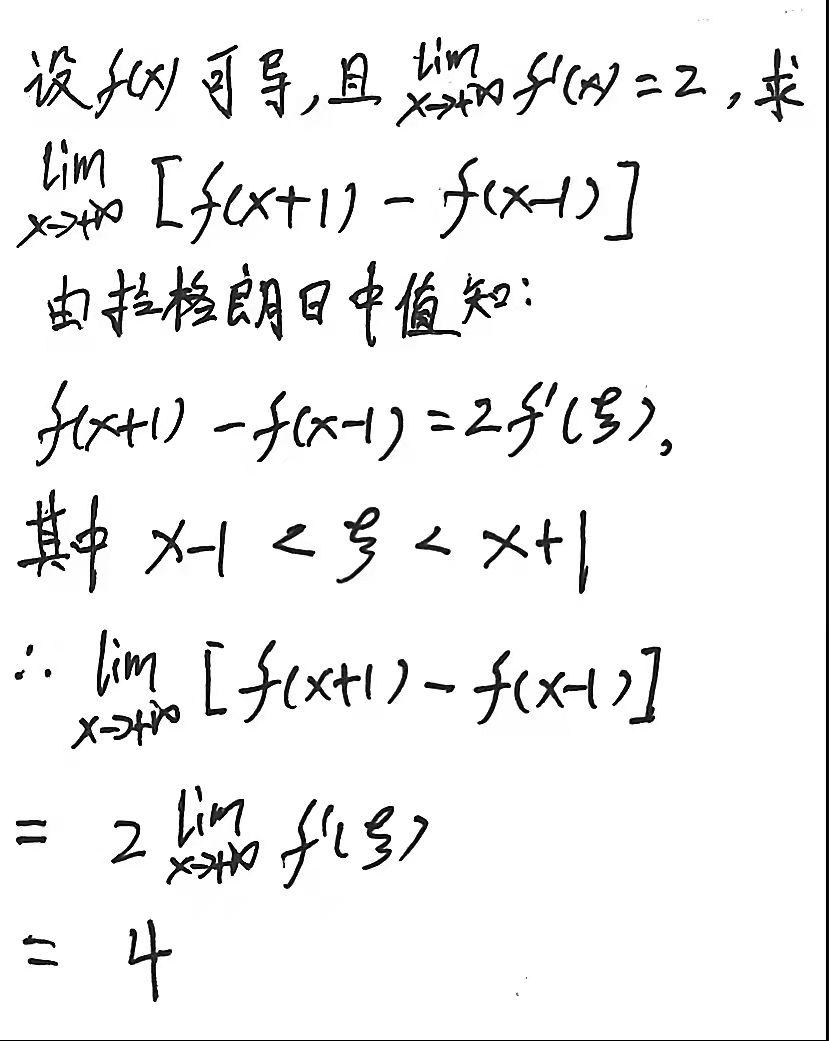 设f(x)可导,且 lim x→+∞ f'(x)=2,求
lim x→+∞ [f(x+1)-f(x-1)]
由拉格朗日中值知:
f(x+1)-f(x-1)=2f'(ξ),
其中 x-1<ξ<x+1
∴ lim x→+∞ [f(x+1)-f(x-1)]
= 2 lim x→+∞ f'(ξ)
= 4